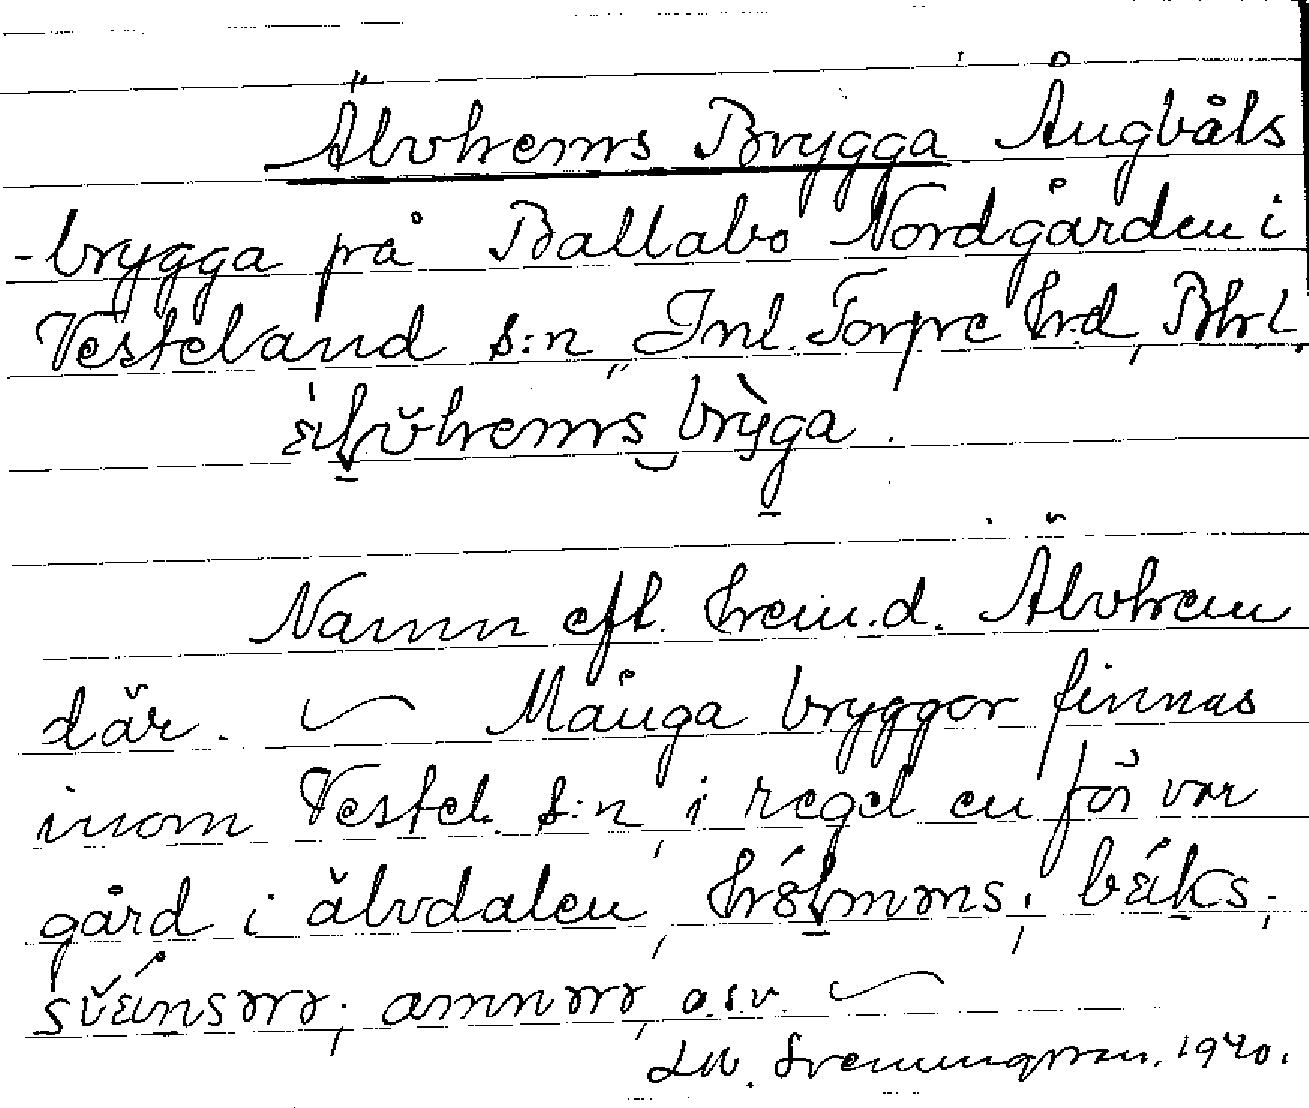 Älvhems Brygga Ångbåts
-brygga på Ballabo Nordgården i
Vesteland s:n, Inl. Torpe hrd, Bhl.
brỳga.
Namn eft. hem.d. Älvhem
där. ~ Många bryggor finnas
inom Vestel. s:n, i regel en för var
gård i älvdalen,
o.s.v. ~
1940.